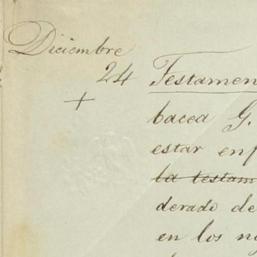 Diciembre
24
+
Testamen
bacea G.
estar enf
la testam
derado de
en los ne